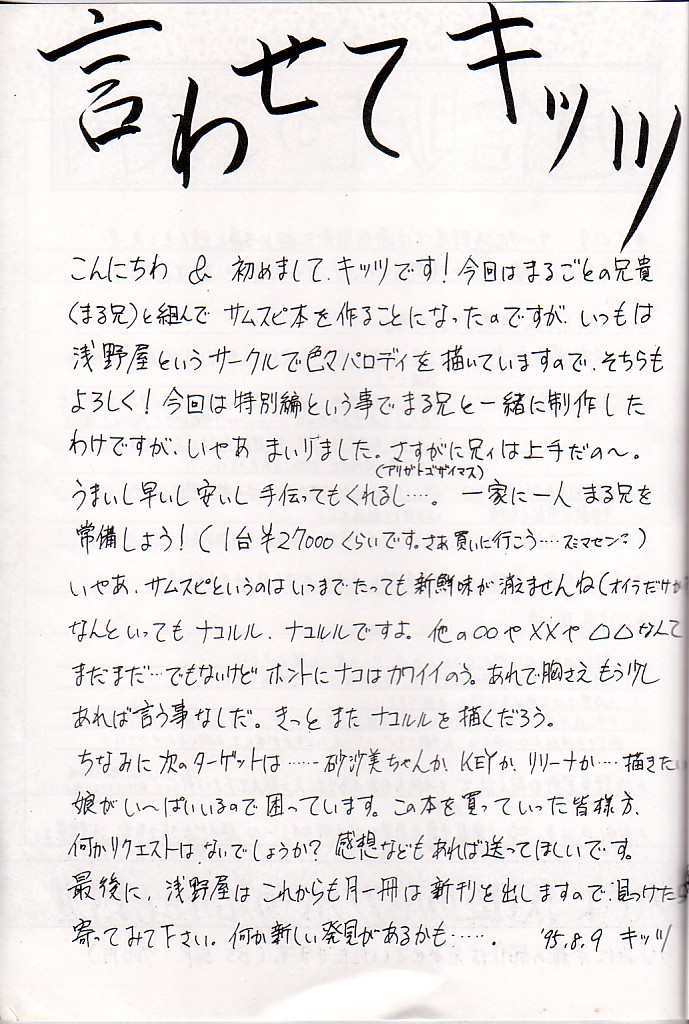 言わせてキッツ
こんにちわ & 初めまして、キッツです！今回はまるごとの兄貴
(まる兄)と組んで サムスピ本を作ることになったのですが、いつもは
浅野屋というサークルで色々パロディを描いていますので、そちらも
よろしく！今回は特別編という事でまる兄と一緒に制作した
わけですが、いやあ まいりました。さすがに兄ィは上手だの〜。
(アリガトゴザイマス)
うまいし早いし 安いし 手伝ってもくれるし…。 一家に一人 まる兄を
常備しよう！(1台¥27000くらいです。さあ買いに行こう…スミマセン?)
いやあ、サムスピというのはいつまでたっても新鮮味が消えませんね(オイラだけか
なんといっても ナコルル、ナコルルですよ。他の○○や××や△△なんて
まだまだ…でもないけど ホントにナコはカワイイのう。あれで胸さえ もう少し
あれば言う事なしだ。きっと また ナコルルを描くだろう。
ちなみに次のターゲットは……砂沙美ちゃんか、KEYか、リリーナか…描きたい
娘がい〜ぱいいるので困っています。この本を買っていった皆様方、
何かリクエストは、ないでしょうか？ 感想などもあれば送ってほしいです。
最後に、浅野屋は これからも月一冊は新刊を出しますので、見つけたら
寄ってみて下さい。何か新しい発見があるかも……。 '95.8.9 キッツ